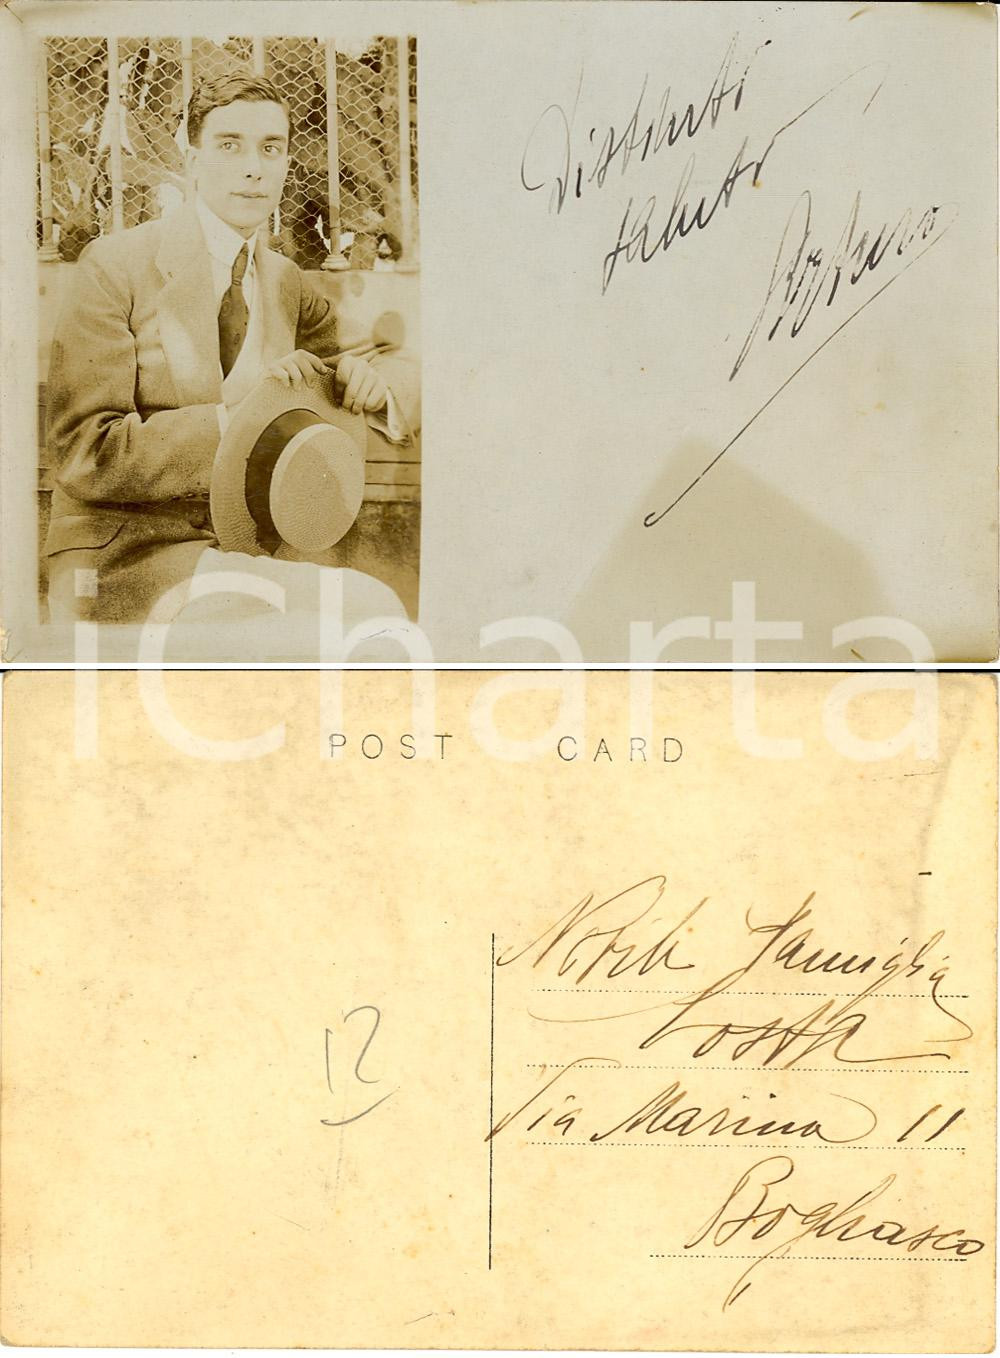 Distinti
saluti
iCharta
POST CARD
Nobile Famiglia
Costa
Via Marina 11
Bogliasco
12